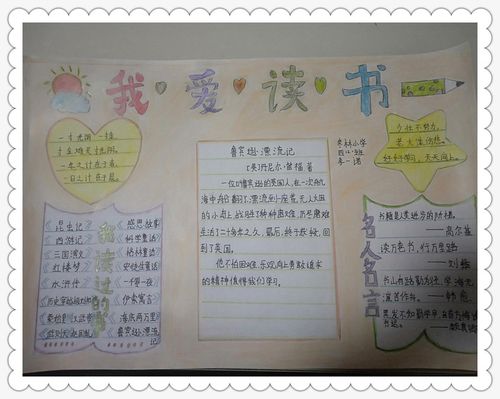 我爱读书
一寸光阴一寸金
寸金难买寸光阴。
一年之计在于春，
一日之计在于晨。
少壮不努力，
老大徒伤悲。
好好学习，天天向上。
李一诺
鲁宾逊漂流记
[英]丹尼尔·笛福 著
一位叫鲁宾逊的英国人，在一次航
海中船翻了，漂流到小岛，
的小岛上，战胜了种种困难，
生活了二十八年之久，最后，终于获救，回
到了英国。
他不怕困难、乐观向上、勇敢追求
的精神值得我们学习。
我读过的书
《昆虫记》
《西游记》
《三国演义》
《红楼梦》
《水浒传》
《感恩故事》
《科学童话》
《格林童话》
《安徒生童话》
《一千零一夜》
《伊索寓言》
《海底两万里》
《鲁宾逊漂流记》
名人名言
书籍是人类进步的阶梯。
——高尔基
读万卷书，行万里路
——刘彝
书山有路勤为径，学海无
涯苦作舟。——韩愈
黑发不知勤学早，白首方悔
读书迟。——颜真卿